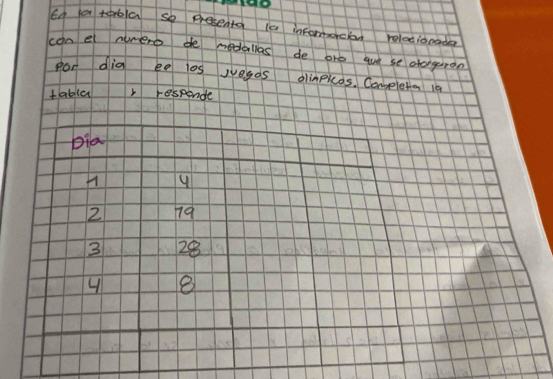 En la tabla se presenta la informarcion relacionada
con el numero de medallas de oro que se otorgaron
por dia ee los juegos olinpicos. Completa la
tabla y responde
Dia
1 4
2 19
3 28
4 8